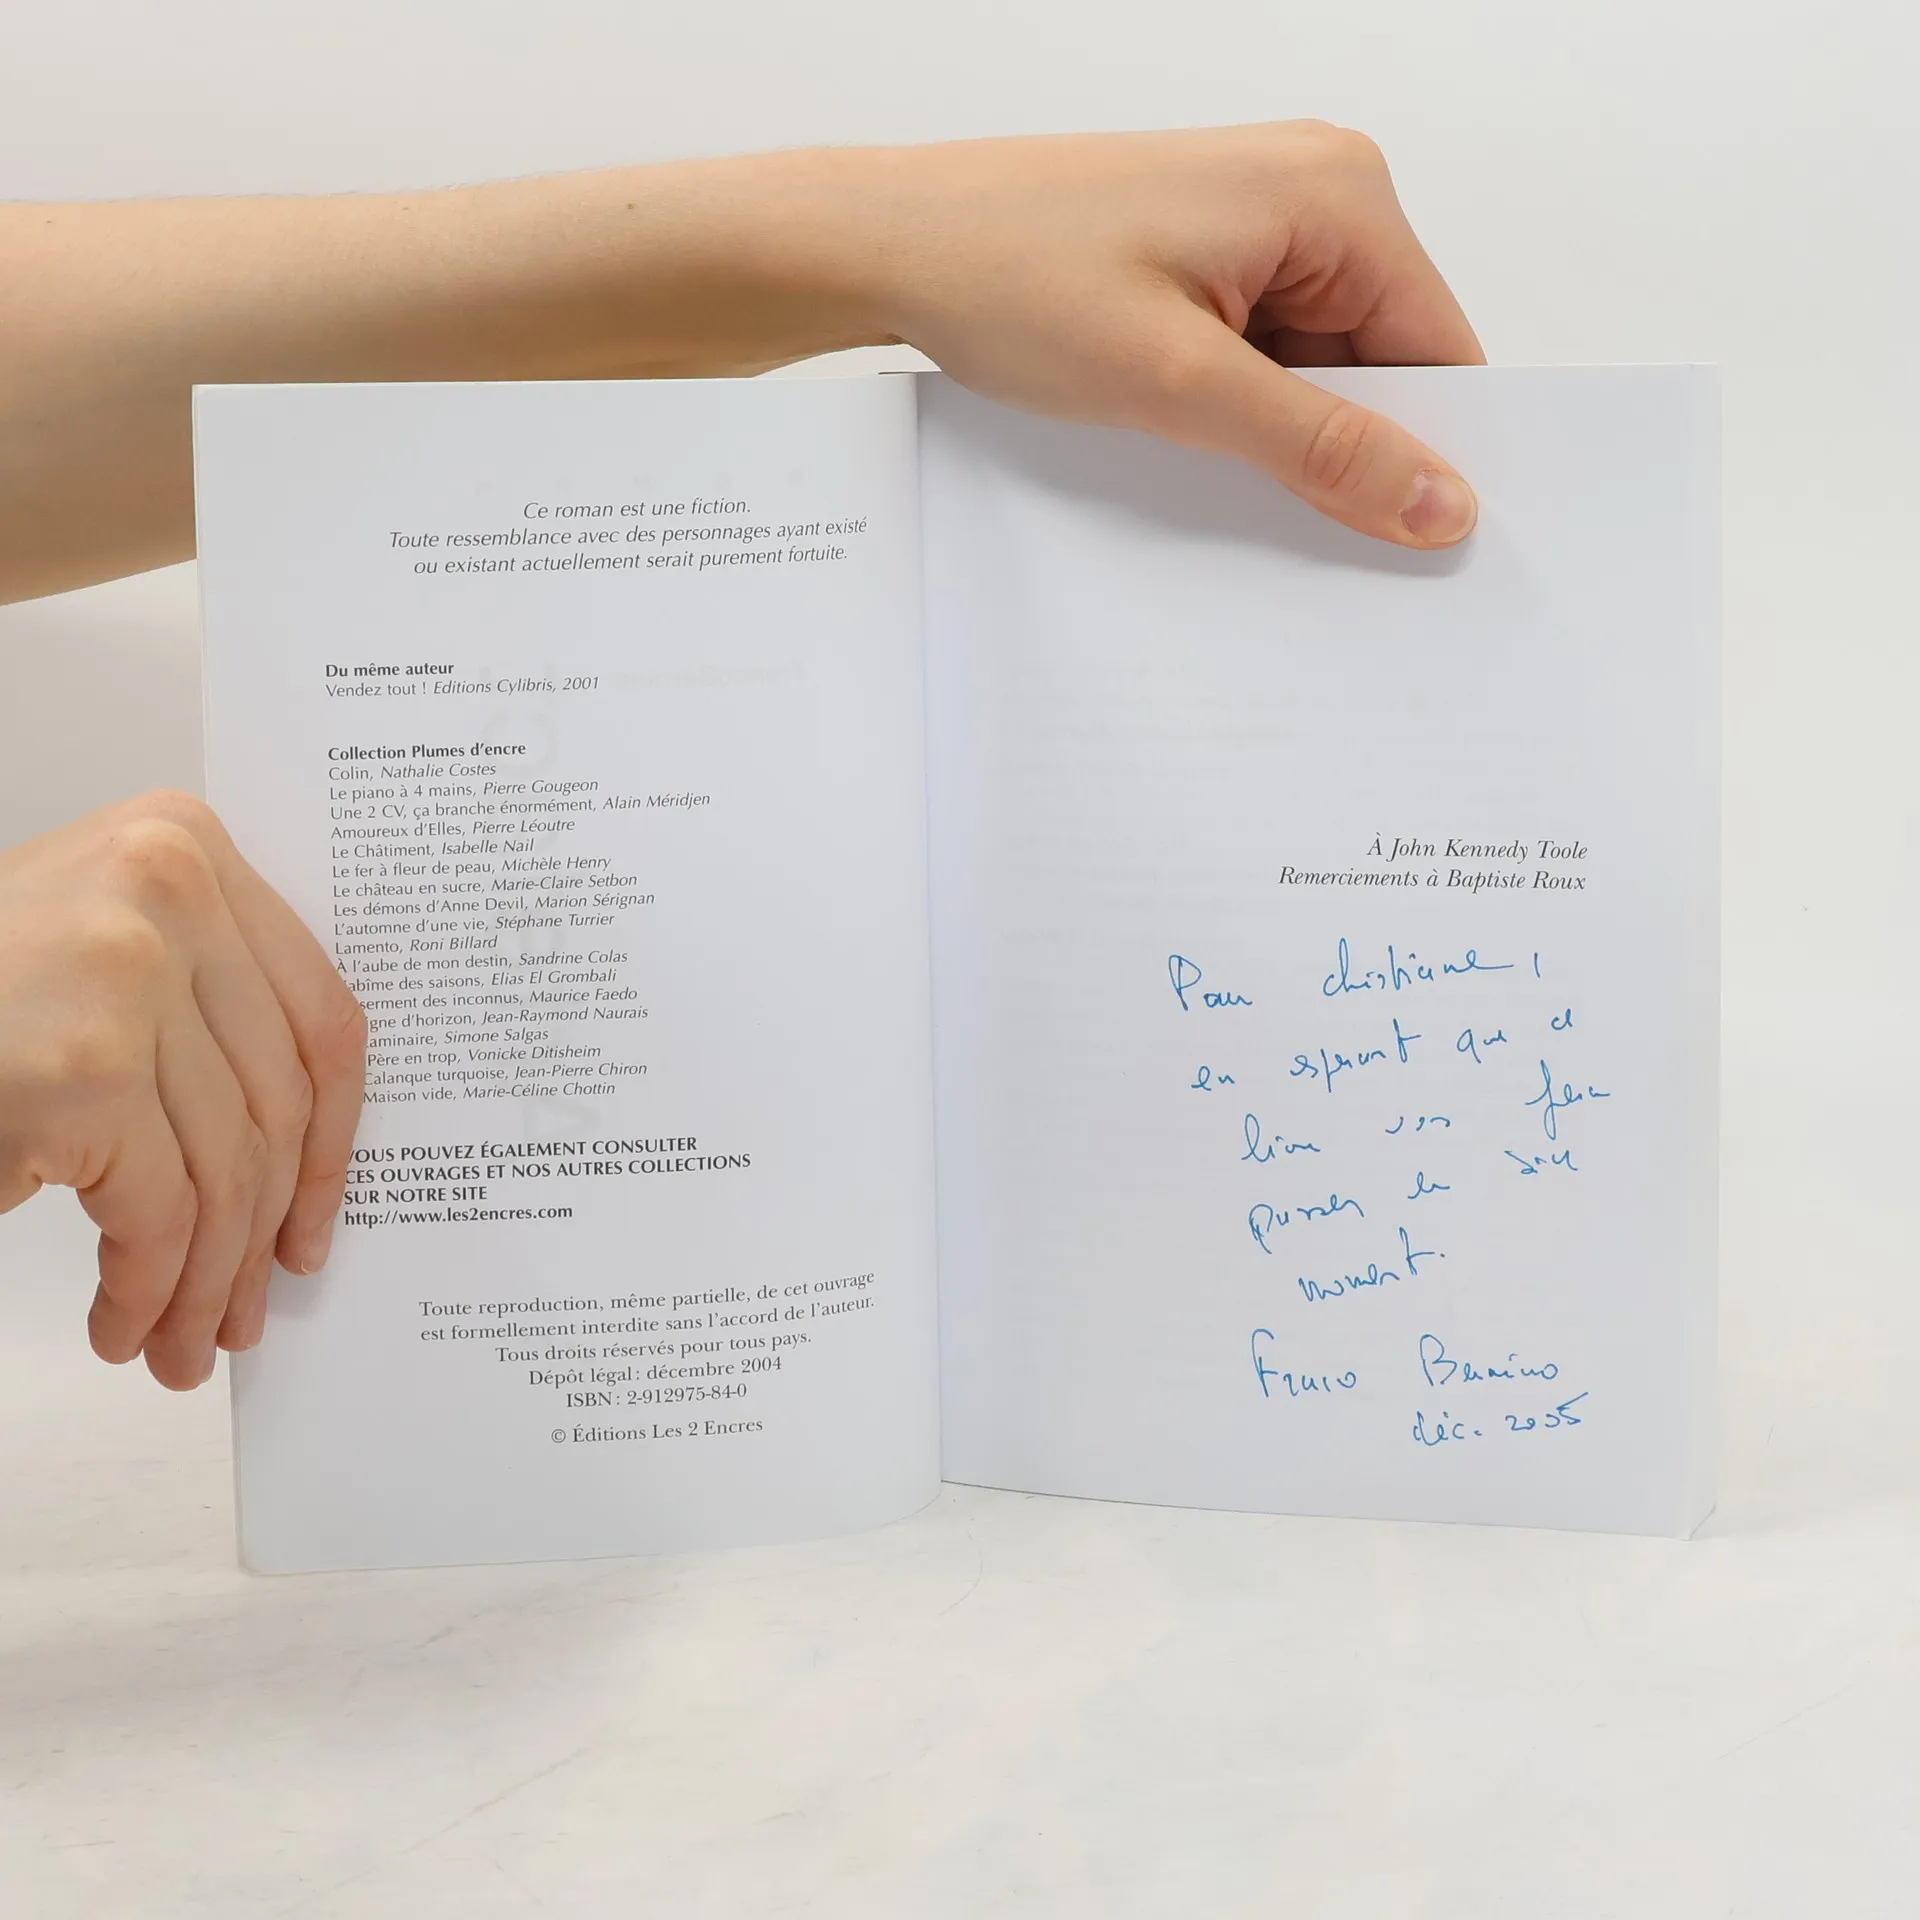 Ce roman est une fiction.
Toute ressemblance avec des personnages ayant existé
ou existant actuellement serait purement fortuite.
Du même auteur
Vendez tout ! Editions Cylibris, 2001
Collection Plumes d'encre
Colin, Nathalie Costes
Le piano à 4 mains, Pierre Gougeon
Une 2 CV, ça branche énormément, Alain Méridjen
Amoureux d'Elles, Pierre Léoutre
Le Châtiment, Isabelle Nail
Le fer à fleur de peau, Michèle Henry
Le château en sucre, Marie-Claire Setbon
Les démons d'Anne Devil, Marion Sérignan
L'automne d'une vie, Stéphane Turrier
Lamento, Roni Billard
À l'aube de mon destin, Sandrine Colas
abîme des saisons, Elias El Grombali
serment des inconnus, Maurice Faedo
igne d'horizon, Jean-Raymond Naurais
aminaire, Simone Salgas
Père en trop, Vonicke Ditisheim
Calanque turquoise, Jean-Pierre Chiron
Maison vide, Marie-Céline Chottin
VOUS POUVEZ ÉGALEMENT CONSULTER
CES OUVRAGES ET NOS AUTRES COLLECTIONS
SUR NOTRE SITE
http://www.les2encres.com
Toute reproduction, même partielle, de cet ouvrage
est formellement interdite sans l'accord de l'auteur.
Tous droits réservés pour tous pays.
Dépôt légal : décembre 2004
ISBN : 2-912975-84-0
© Éditions Les 2 Encres
À John Kennedy Toole
Remerciements à Baptiste Roux
Pour Christiane,
en espérant que ce
livre vous fera
passer un
moment.
Franco Bernino
déc. 2005